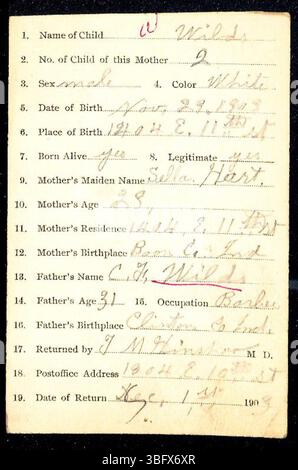 (1)
1. Name of Child Wilds
2. No. of Child of this Mother 2
3. Sex male 4. Color White
5. Date of Birth Nov. 29, 1903
6. Place of Birth 1404 E. 11th st
7. Born Alive yes 8. Legitimate yes
9. Mother's Maiden Name Hart.
10. Mother's Age 28,
11. Mother's Residence 1404 E. 11th st
12. Mother's Birthplace Boon Co. Ind
13. Father's Name C. H. Wilds
14. Father's Age 31 15. Occupation Barber
16. Father's Birthplace Clinton Co Ind.
17. Returned by M. D.
18. Postoffice Address 1304 E. 10th st
19. Date of Return Dec, 1st 190